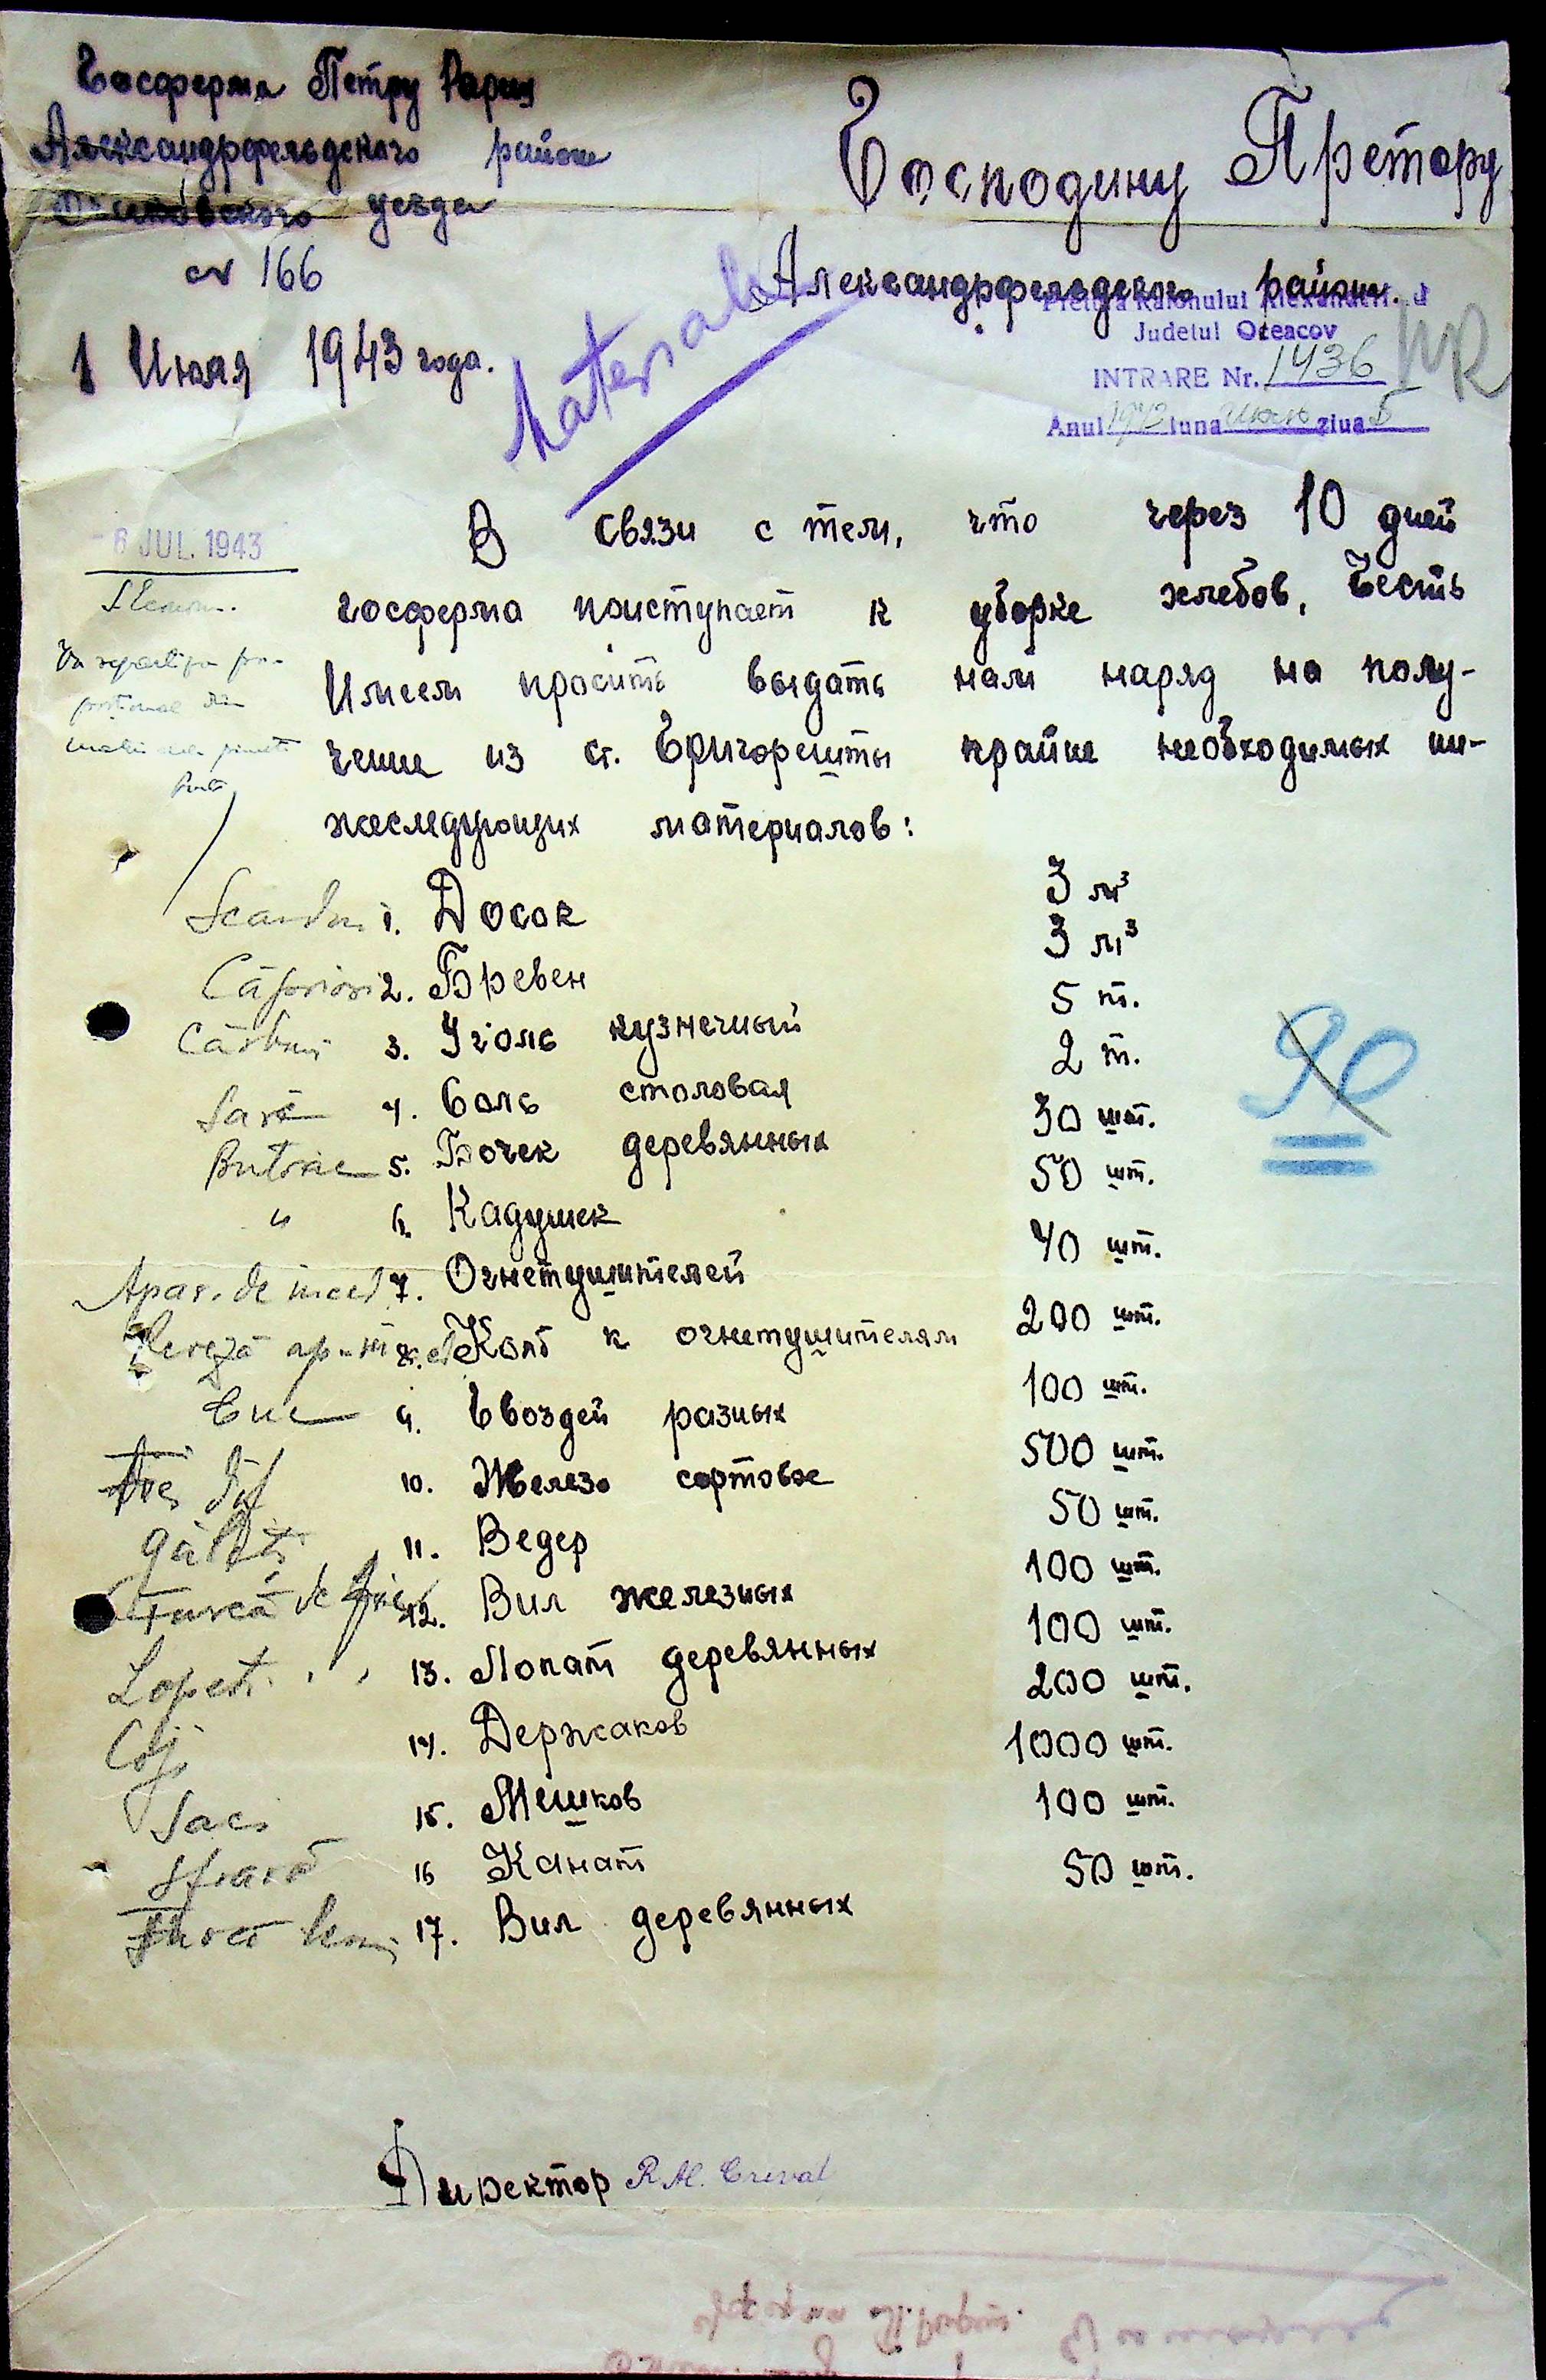 Госферма Петру Рареш
Александрфельдского района
Очаковского уезда
№ 166
1 Июля 1943 года.
Господину Претору
Александрфельдского района.
Pretura Raionului Alexanderfeld
Judetul Oceacov
INTRARE Nr. 1436
Anul 1943 luna июль ziua 5
Materiale
- 6 JUL. 1943
В связи с тем, что через 10 дней
госферма приступает к уборке хлебов, Честь
Имеем просить выдать нам наряд на полу-
чение из с. Григорешты крайне необходимых ни-
жеследующих материалов:
Scanduri 1. Досок 3 м³
Căpriori 2. Бревен 3 м³
Cărbuni 3. Уголь кузнечный 5 т.
Sare 4. Соль столовая 2 т.
Butoae 5. Бочек деревянных 30 шт.
" 6. Кадушек 50 шт.
Apar. de incend 7. Огнетушителей 40 шт.
8. Колб к огнетушителям 200 шт.
Cue 9. Гвоздей разных 100 шт.
10. Железо сортовое 500 шт.
găleți 11. Ведер 50 шт.
Furcă de fier 12. Вил железных 100 шт.
Lopeti 13. Лопат деревянных 100 шт.
Cozi 14. Держаков 200 шт.
Saci 15. Мешков 1000 шт.
Sfoară 16 Канат 100 шт.
Furcă lemn 17. Вил деревянных 50 шт.
90
Директор